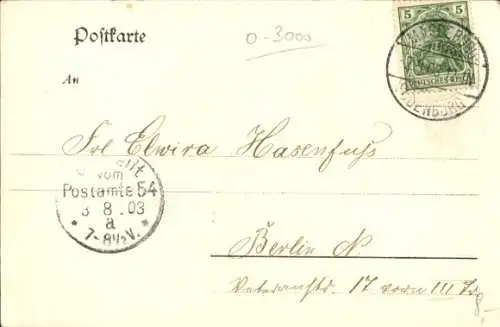 Postkarte
0-3000
5 5
An
Frl Elwira Hasenfuss
vom
Postamte 54
3 8 .03
a
* 7-8½V. *
Berlin N.
Veteranstr. 17 vorn III Trg
8,-